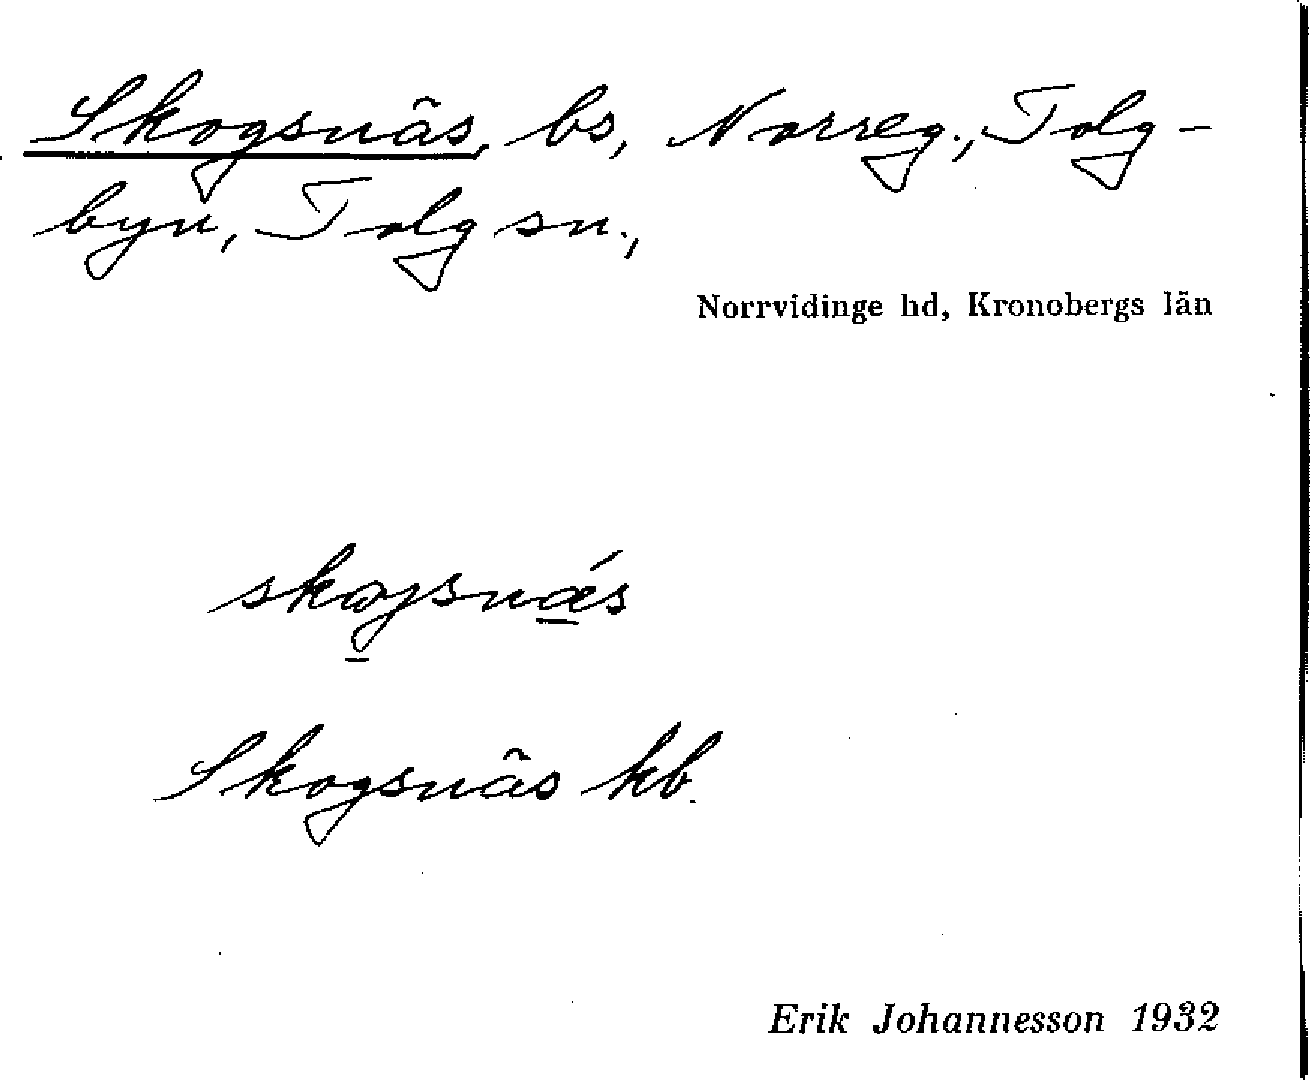 Skogsnäs, bs, Norreg., Tolg-
byn, Tolg sn.,
Norrvidinge hd, Kronobergs län
Skogsnäs kb.
Erik Johannesson 1932